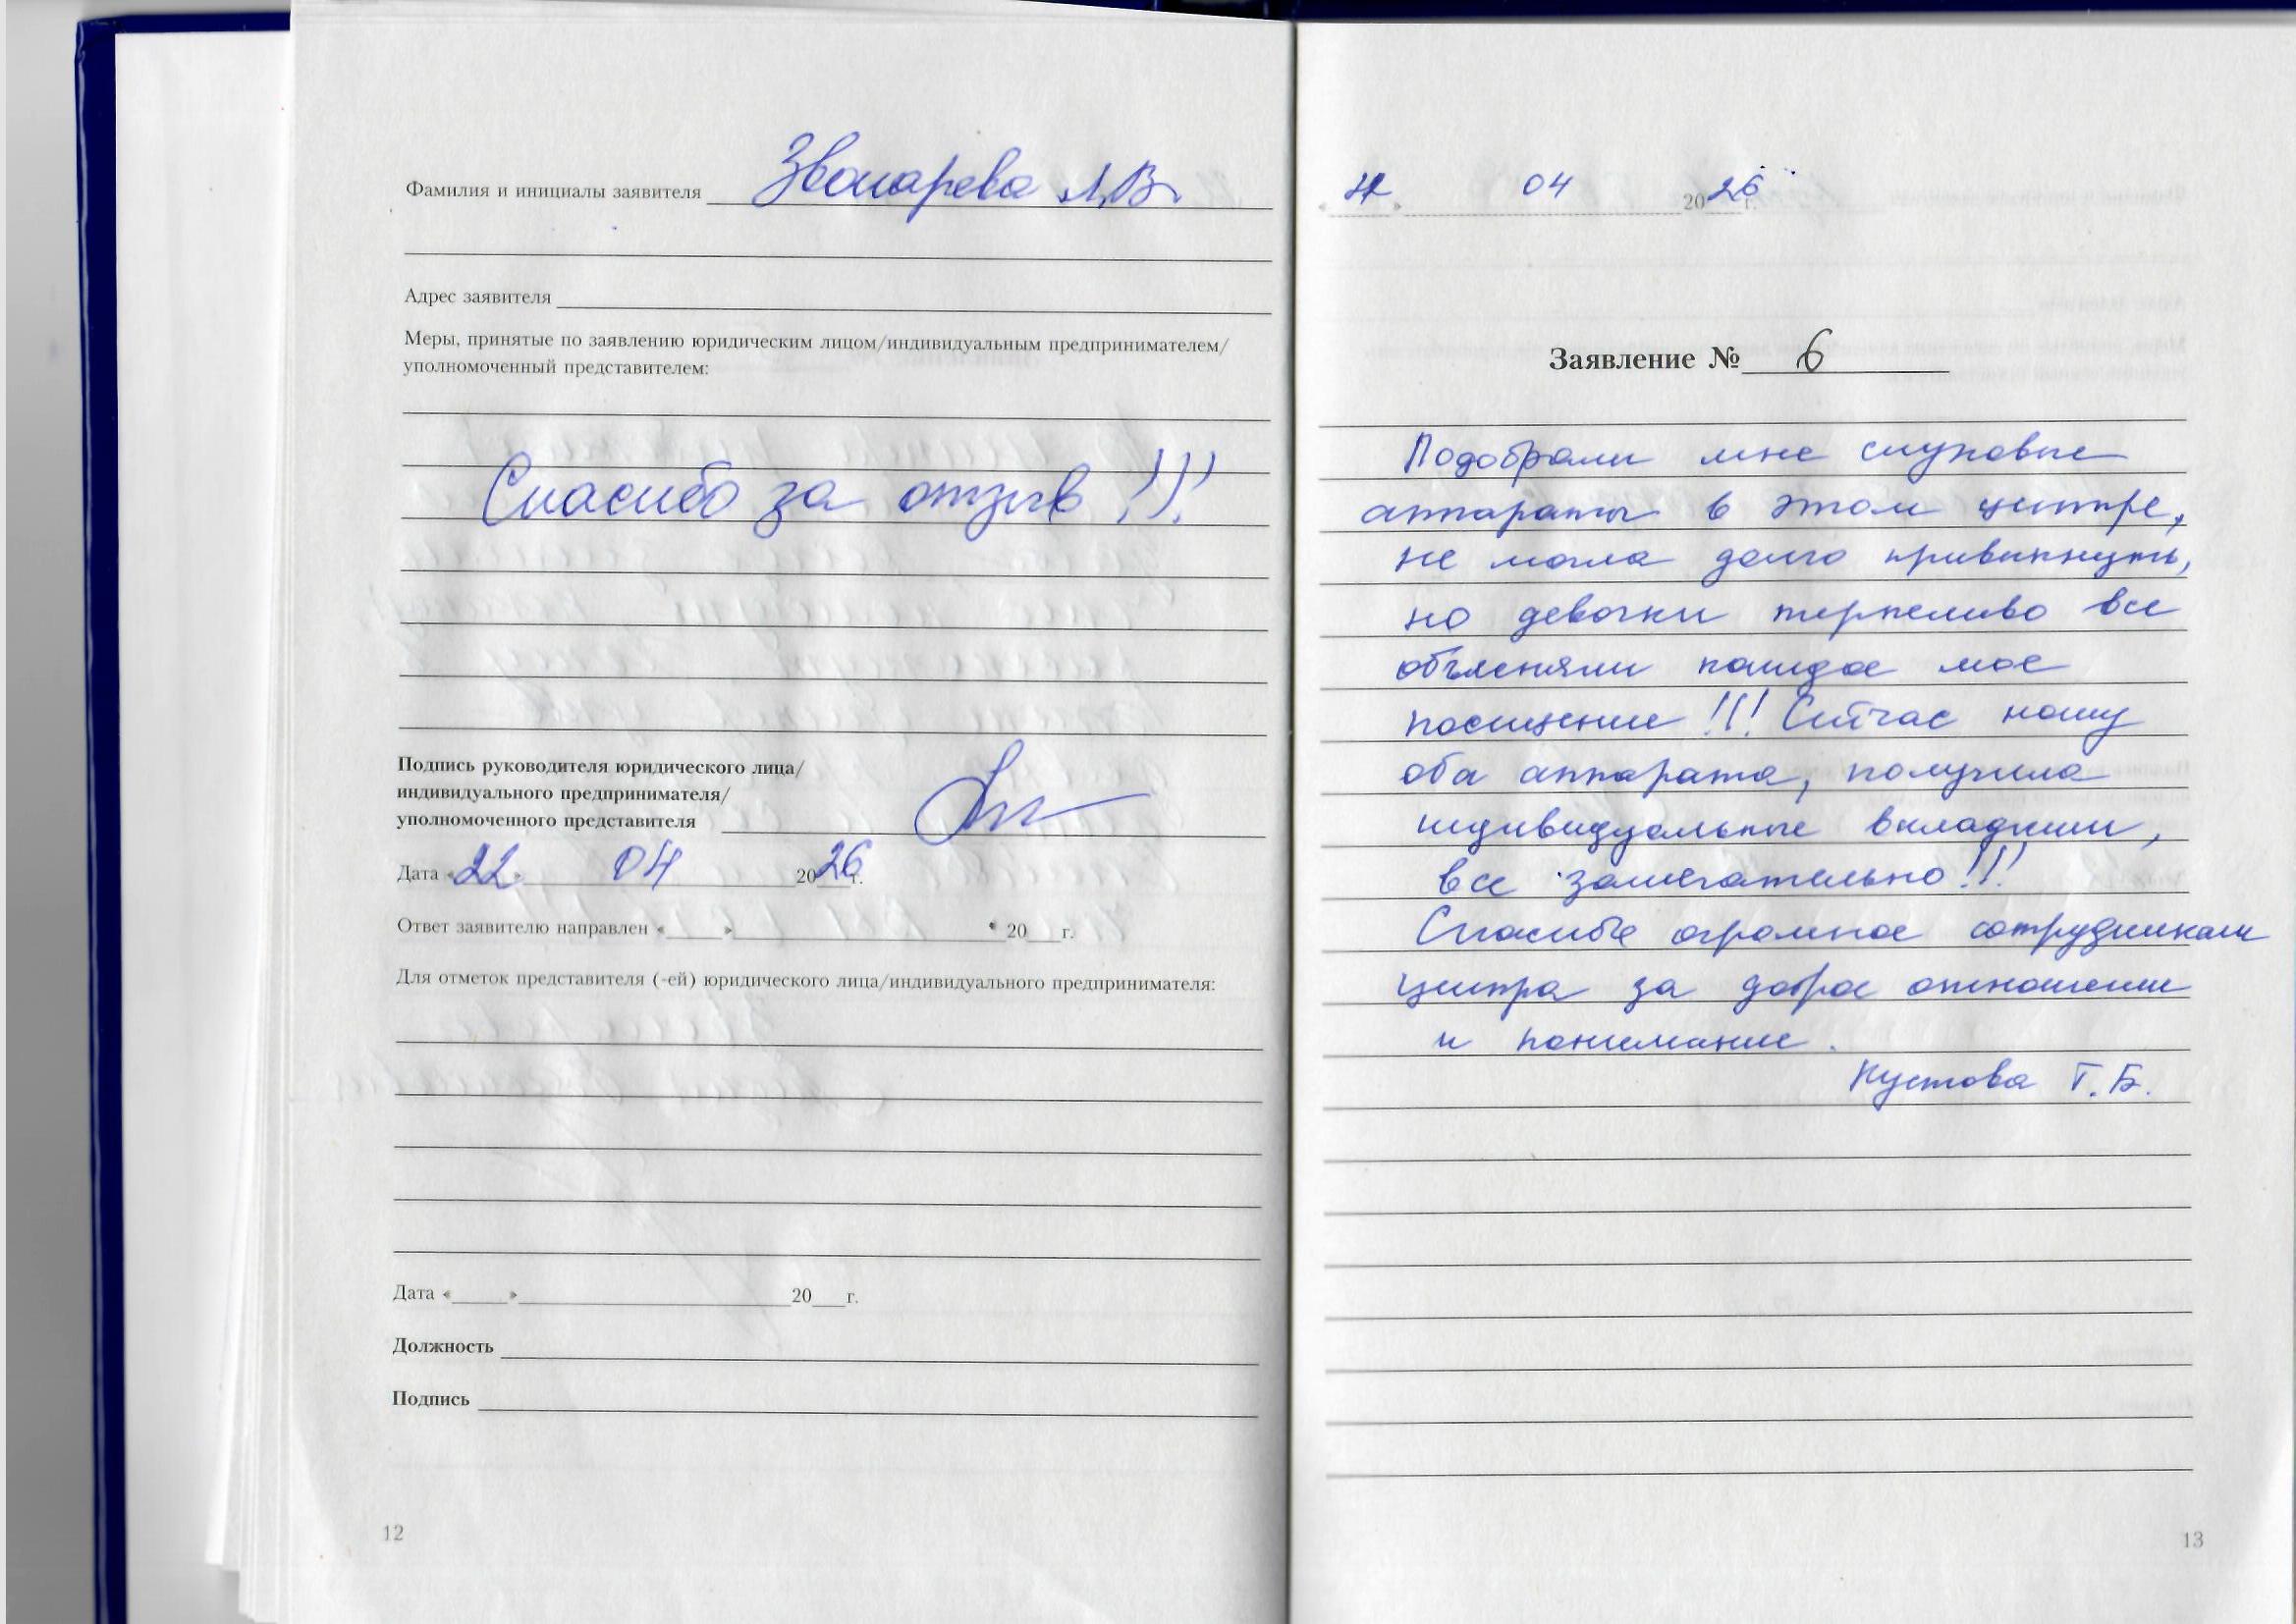 Фамилия и инициалы заявителя Звонарева Л.В.
Адрес заявителя
Меры, принятые по заявлению юридическим лицом/индивидуальным предпринимателем/
уполномоченный представителем:
Спасибо за отзыв !!!
Подпись руководителя юридического лица/
индивидуального предпринимателя/
уполномоченного представителя
Дата «22» 04 2026 г.
Ответ заявителю направлен «___» 20___г.
Для отметок представителя (-ей) юридического лица/индивидуального предпринимателя:
Дата «___» 20___г.
Должность
Подпись
12
04 2026 г.
Заявление № 6
Подобрали мне слуховые
аппараты в этом центре,
не могла долго привыкнуть,
но девочки терпеливо все
объясняли каждое мое
посещение !!! Сейчас ношу
оба аппарата, получила
индивидуальные вкладыши,
все замечательно!!!
Спасибо огромное сотрудникам
центра за доброе отношение
и понимание.
Кустова Т.Б.
13